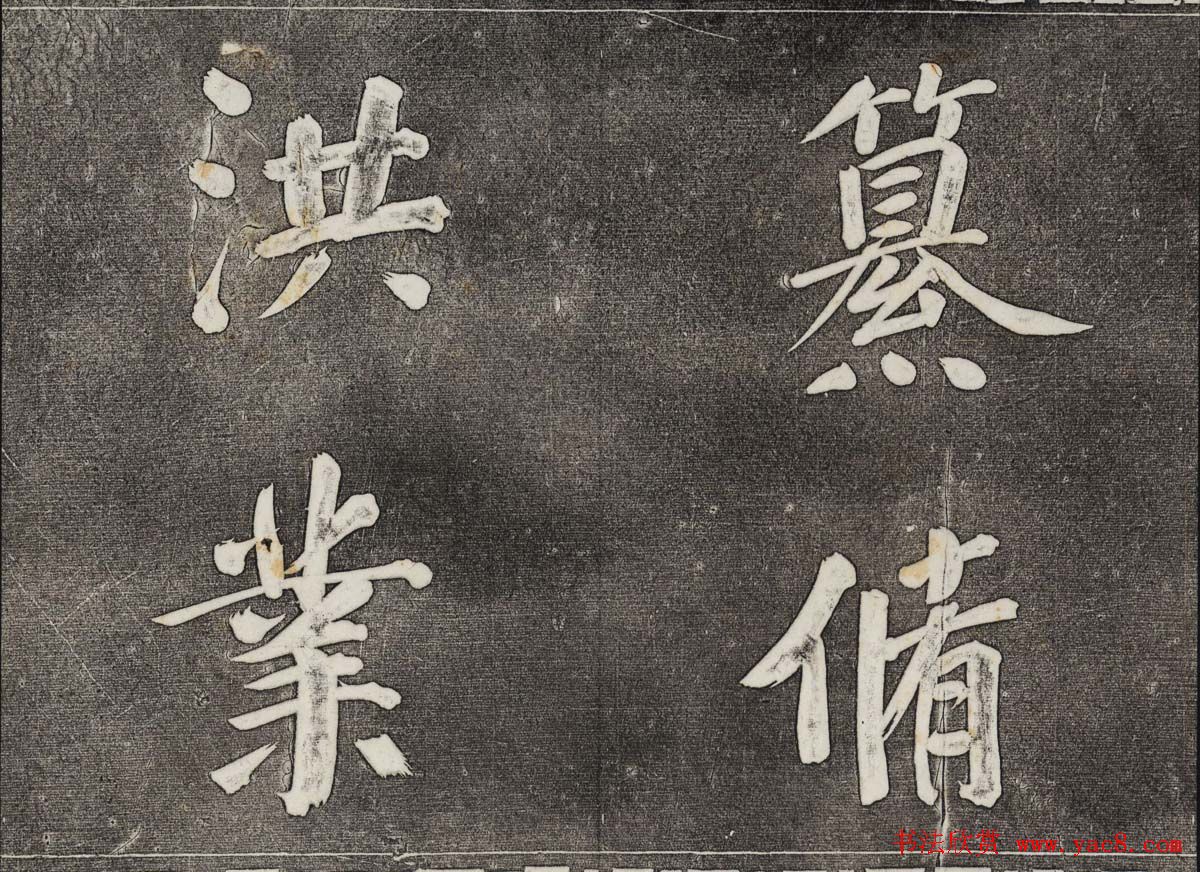 纂脩
洪業
书法欣赏 www.yac8.com